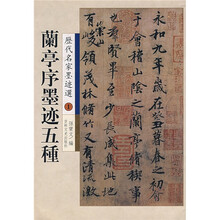 歷代名家墨迹選
蘭亭序墨迹五種
孫寶文 編
永和九年歲在癸丑暮春之初
于會稽山陰之蘭亭脩稧事
也羣賢畢至少長咸集此地
崇山
有峻領茂林脩竹又有清流